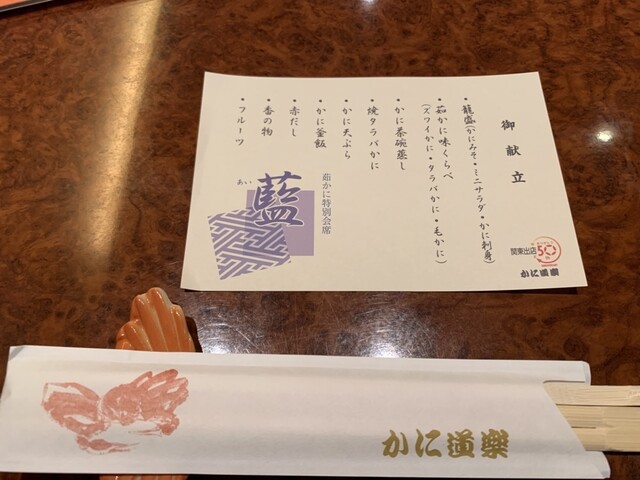 御献立
・籠盛(かにみそ・ミニサラダ・かに刺身)
・茹かに味くらべ
(ズワイかに・タラバかに・毛かに)
・かに茶碗蒸し
・焼タラバかに
・かに天ぷら
・かに釜飯
・赤だし
・香の物
・フルーツ
茹かに特別会席
藍
あい
関東出店50
かに道楽
かに道楽